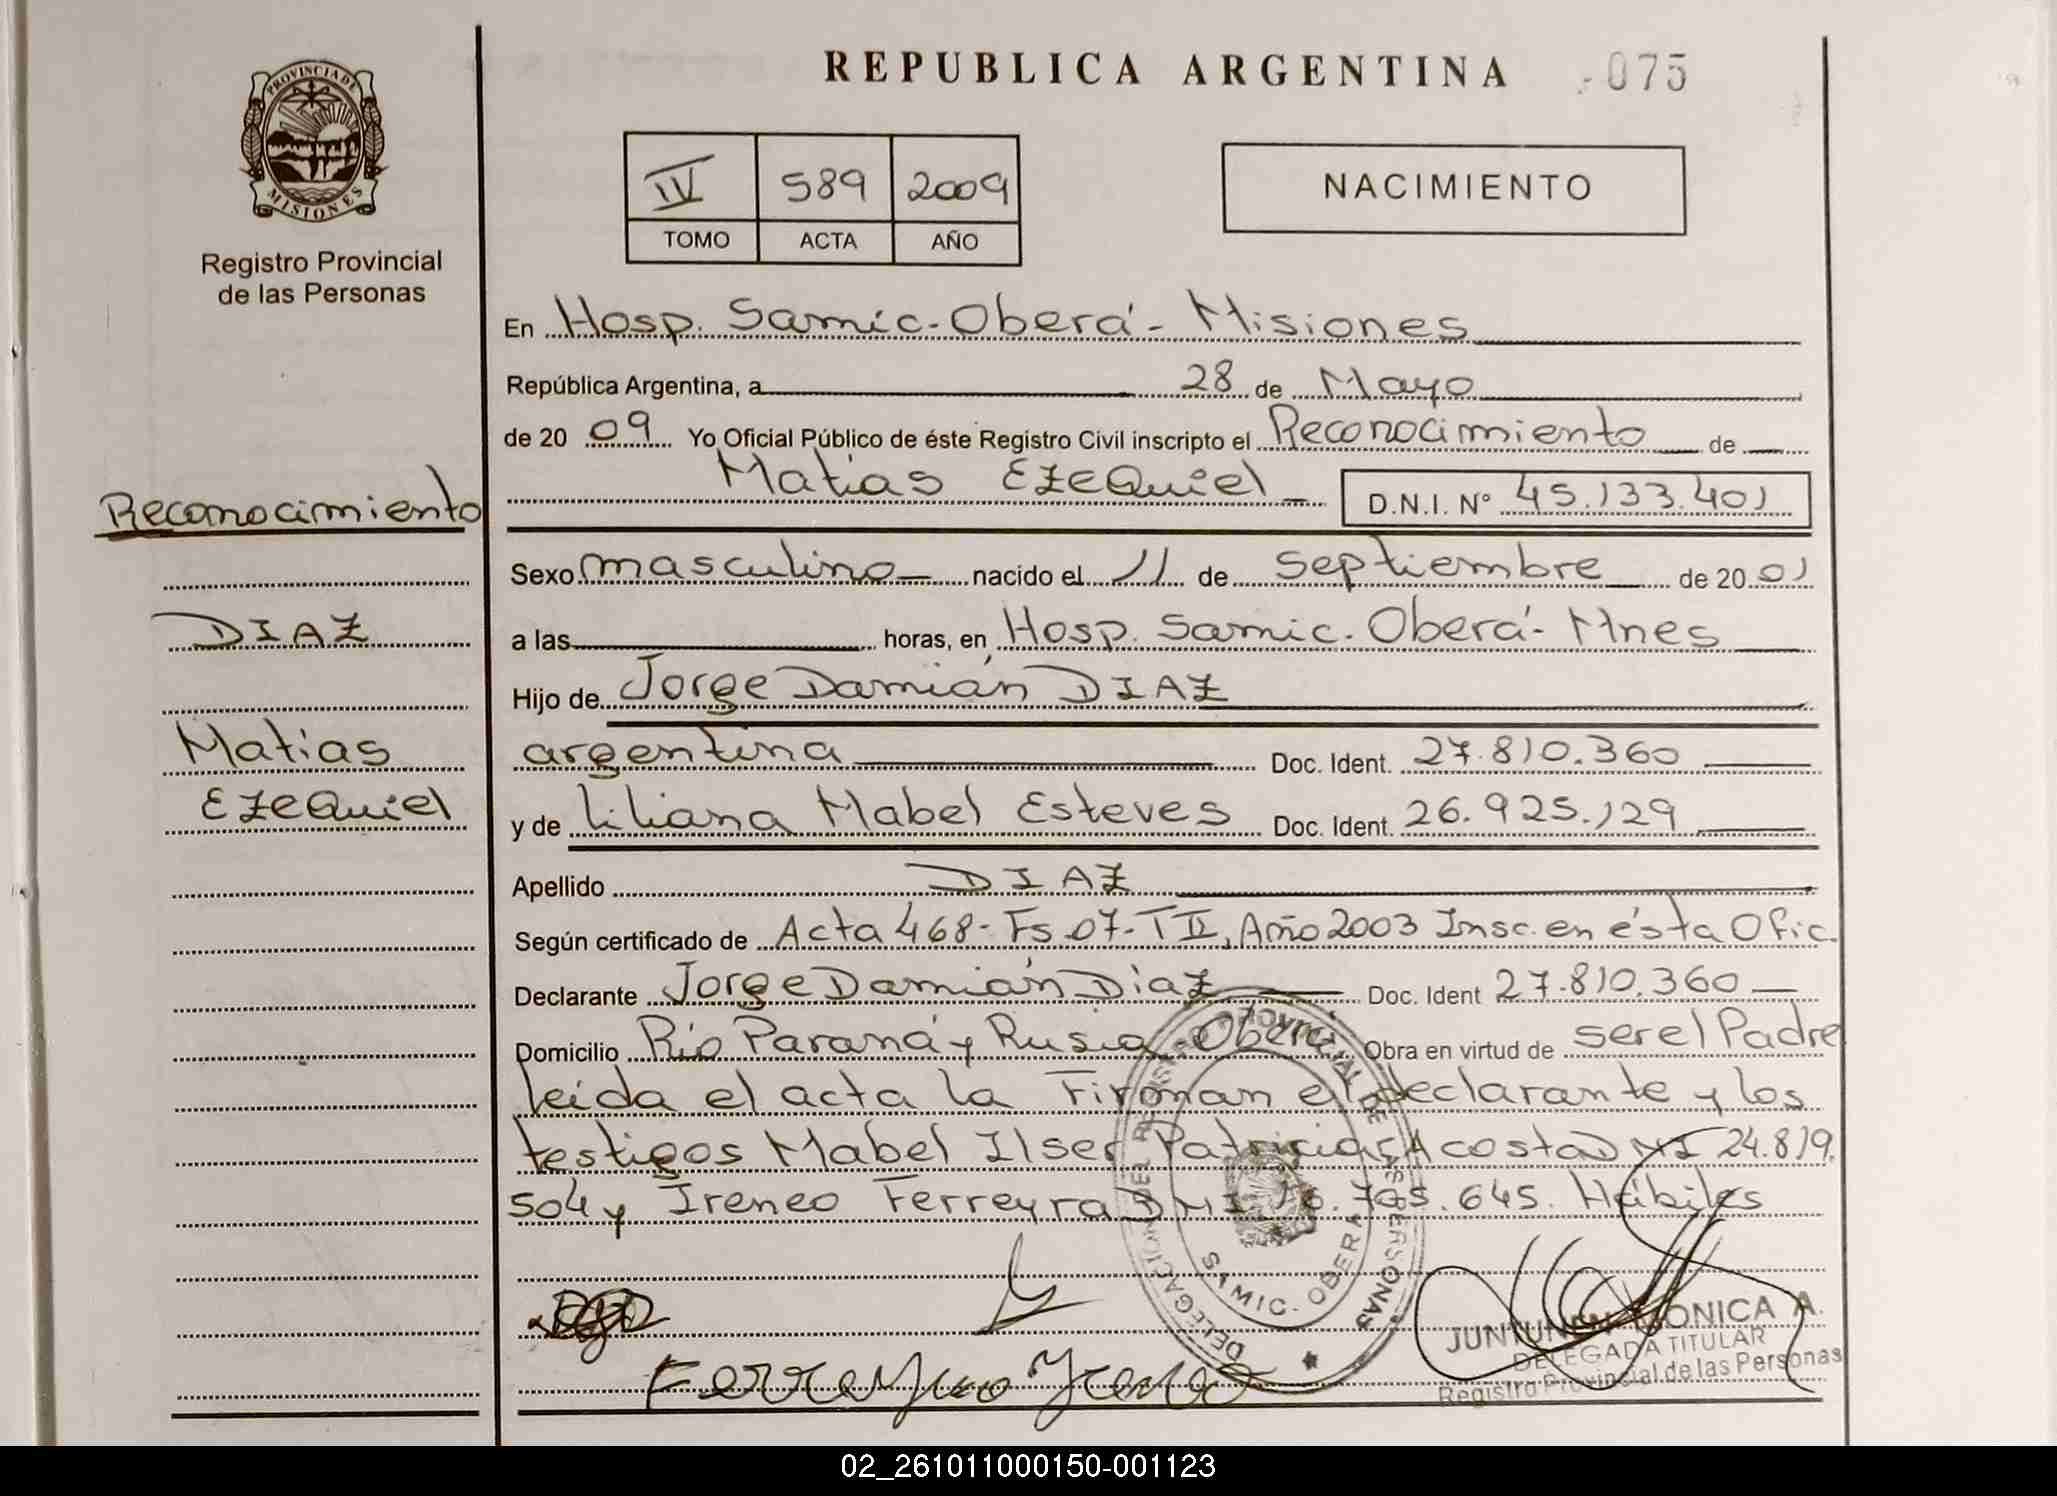 REPUBLICA ARGENTINA 075
PROVINCIA DE
MISIONES
Registro Provincial
de las Personas
IV 589 2009
TOMO ACTA AÑO
NACIMIENTO
En Hosp. Samic-Oberá-Misiones
República Argentina, a 28 de Mayo
de 20 09 Yo Oficial Público de éste Registro Civil inscripto el Reconocimiento de
Matias EZEQuiel D.N.I. N° 45.133.401
Reconocimiento
Sexo masculino nacido el 11 de septiembre de 20 01
DIAZ
a las horas, en Hosp. Samic. Oberá- Mnes
Hijo de Jorge Damián DIAZ
Matias
EZEQuiel
argentina Doc. Ident. 27.810.360
y de Liliana Mabel Esteves Doc. Ident. 26.925.129
Apellido DIAZ
Según certificado de Acta 468-Fs.07-TII, Año 2003 Insc. en ésta Ofic.
Declarante Jorge Damián Diaz Doc. Ident 27.810.360
Domicilio Río Paraná y Rusia-Oberá Obra en virtud de ser el Padre
leída el acta la Firman el declarante y los
testigos Mabel Ilser Patricia Acosta DNI 24.819.
504 y Ireneo Ferreyra DNI .705.645. Hábiles
DELEGACION DEL REGISTRO PROVINCIAL DE LAS PERSONAS
SAMIC. OBERA
JUNTUNEN MONICA A.
DELEGADA TITULAR
Registro Provincial de las Personas
02_261011000150-001123